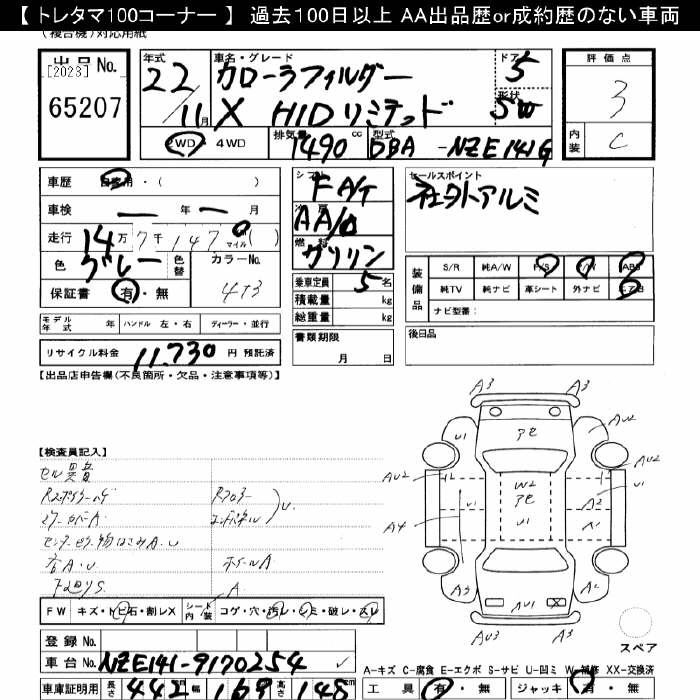 【 トレタマ100コーナー 】 過去100日以上 AA出品歴or成約歴のない車両
(複合機)対応用紙
出品 No.
[2023]
65207
年式
22/11月
車名・グレード
カローラフィルダー
X HIDリミテッド
ドア
5
形状
SW
評価点
3
内装
C
2WD・4WD
排気量
1490 cc
型式
DBA-NZE141G
車歴 自家用・( )
車検 ー 年 ー 月
走行 14万7千147 マイル( )
色 グレー 色替 カラーNo. 4T3
保証書 有・無
シフト FA/T
冷房 AA/C
燃料 ガソリン
乗車定員 5 名
積載量 kg
総重量 kg
セールスポイント
社外アルミ
装備品
S/R 純A/W P/S P/W ABS
純TV 純ナビ 革シート 外ナビ エアB
ナビ型番:
モデル年式 年 ハンドル 左・右 ディーラー・並行
書類期限
月 日
後日品
リサイクル料金 11,730 円 預託済
【出品店申告欄(不良箇所・欠品・注意事項等)】
【検査員記入】
セル異音
ミラーカバーA
ホイールA
下廻りS
A
FW キズ・トビ石・割レX シート内装 コゲ・穴・汚レ・シミ・破レ・スレ
A3 A3
U1 アセ AU2
AU2 W2 AU2
アセ U1
A4 U1 A2
A3 A2
AU1 X
AU3 A3
スペア
登録 No.
車台 No. NZE141-9170254
車庫証明用 長さ 442 幅 169 高さ 148 cm
A-キズ C-腐食 E-エクボ S-サビ U-凹ミ W-補修 XX-交換済
工具 有・無 ジャッキ 有・無